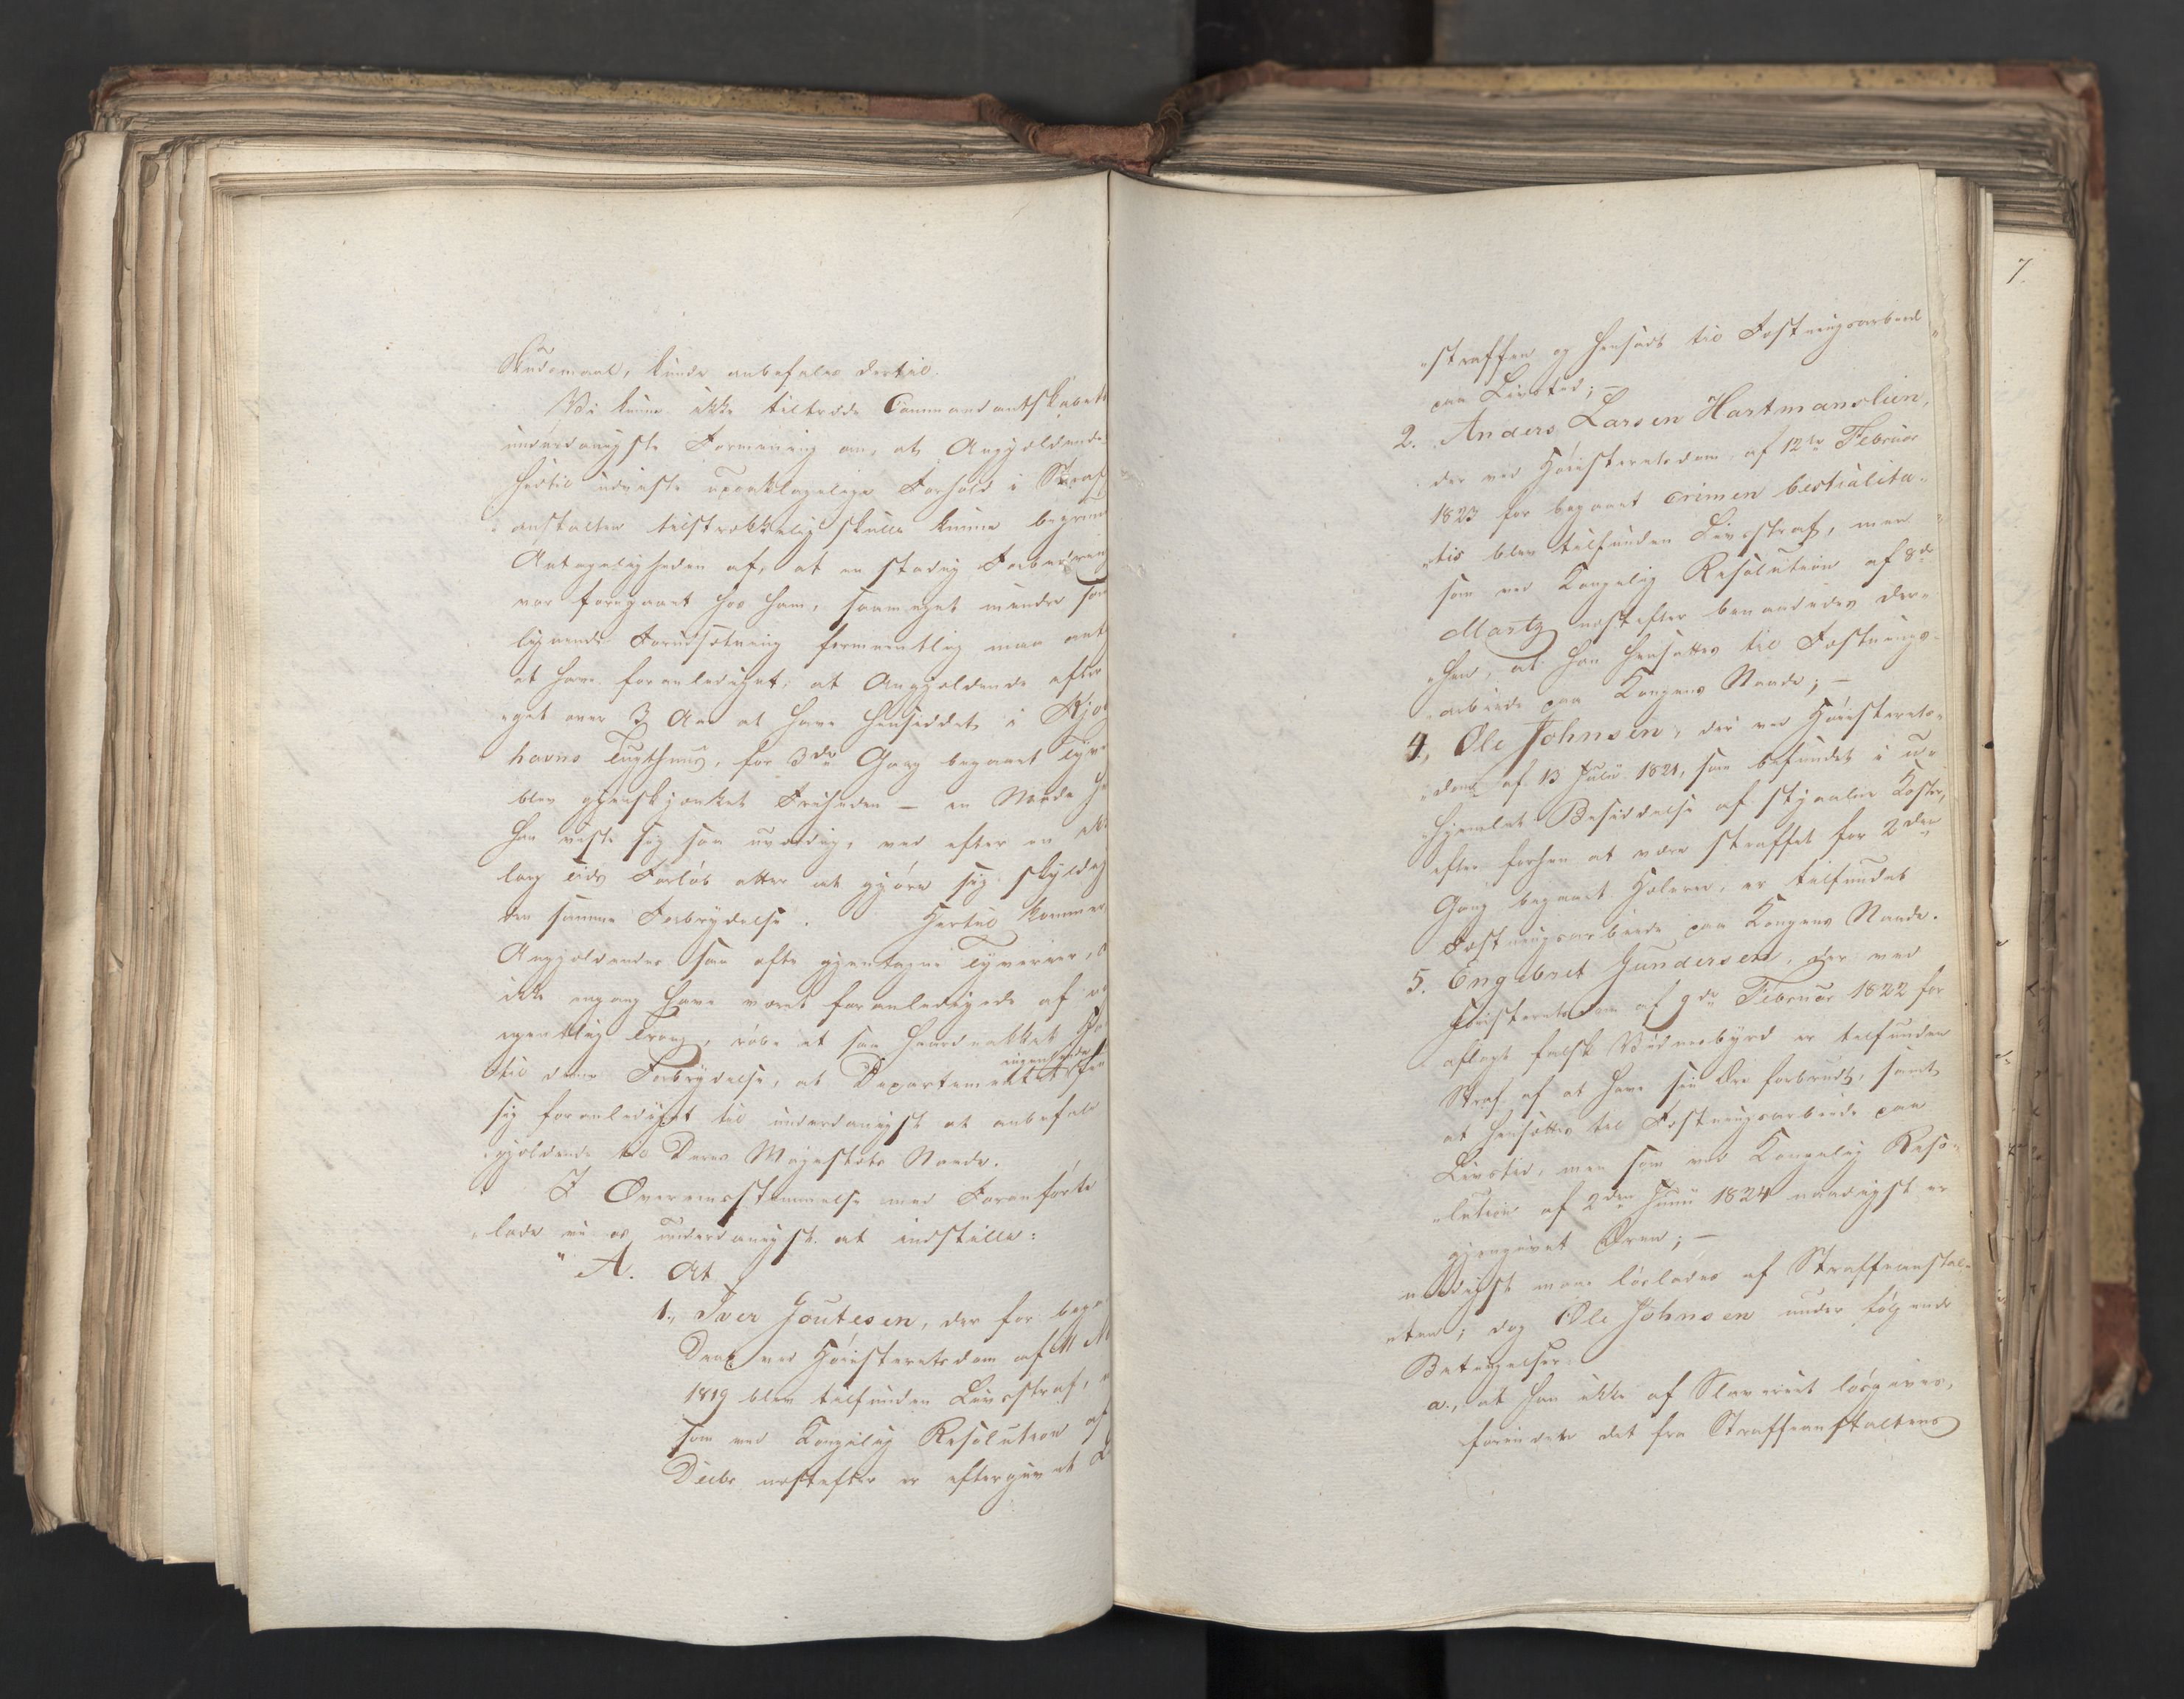 Skudsmaal, kunde anbefales dertil.
Vi kunne ikke tiltræde Commandantskabets
underdanigste Formening om, at Angjældendes
hidtil udviste upaaklagelige Forhold i Straf
anstalten tilstrækkelig skulle kunne begrund
Antageligheden af, at en stadig Forbedring
var foregaaet hos ham, saameget mindre som
lignende Forudsætning formeentlig maa ant
at have foranlediget, at Angjældende efter
get over 3 Aar at have hensiddet i Kjøb
havns Tugthuus, for 3die Gang begaaet Tyve
blev gjenskjænket Friheden — en Naade h
han viste sig saa uværdig, ved efter en
lang Tids Forløb atter at gjøre sig skyldig
den samme Forbrydelse. Hertil kommer
Angjældendes saa ofte gjentagne Tyverier,
ikke engang have været foranledigede af
egentlig Trang, røbe et saa haardnakket
til denne Forbrydelse, at Departementet ingenlunde
sig foranlediget til underdanigst at anbefale
gjældende til Deres Majestæts Naade.
I Overeensstemmelse med Foranførte
lade vi os underdanigst at indstille:
" A. At
1., Iver Joutesen, der for bega
Drab ved Høiesteretsdom af 11 M
1819 blev tilfunden Livsstraf,
som ved Kongelig Resolution af
Decbr næstefter er eftergivet L
7.
"straffen og hensadt til Fæstningsarbeide
paa Livstid; —
2. Anders Larsen Hartmanslien,
der ved Høiesteretsdom af 12te Februar
1823 for begaaet crimen bestialita-
"tis blev tilfunden Livsstraf, men
som ved Kongelig Resolution af 8de
Marts næstefter benaadedes der-
"hen, at han hensattes til Fæstnings-
"arbeide paa Kongens Naade; —
4., Ole Johnsen, der ved Høiesterets-
"dom af 13 Julii 1821, som befundet i u-
"hjemlet Besiddelse af stjaalne Koster,
efter forhen at være straffet for 2den
Gang begaaet Hæleri, er tilfundet
Fæstningsarbeide paa Kongens Naade.
5. Engebret Gundersen, der ved
Høiesteretsdom af 9de Februar 1822 for
aflagt falsk Vidnesbyrd er tilfunden
Straf af at have sin Ære forbrudt, samt
at hensættes til Fæstningsarbeide paa
Livstid, men som ved Kongelig Reso-
"lution af 2den Junii 1824 naadigst er
gjengivet Æren; —
naadigst maae løslades af Straffeanstal-
"ten; dog Ole Johnsen under følgende
Betingelser
a., at han ikke af Slaveriet løsgives,
forinden det fra Straffeanstaltens